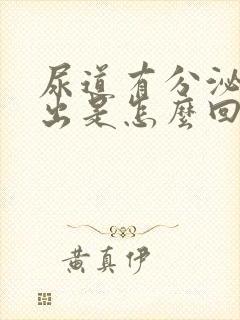 尿道有分泌
出是怎麼回
黃真伊